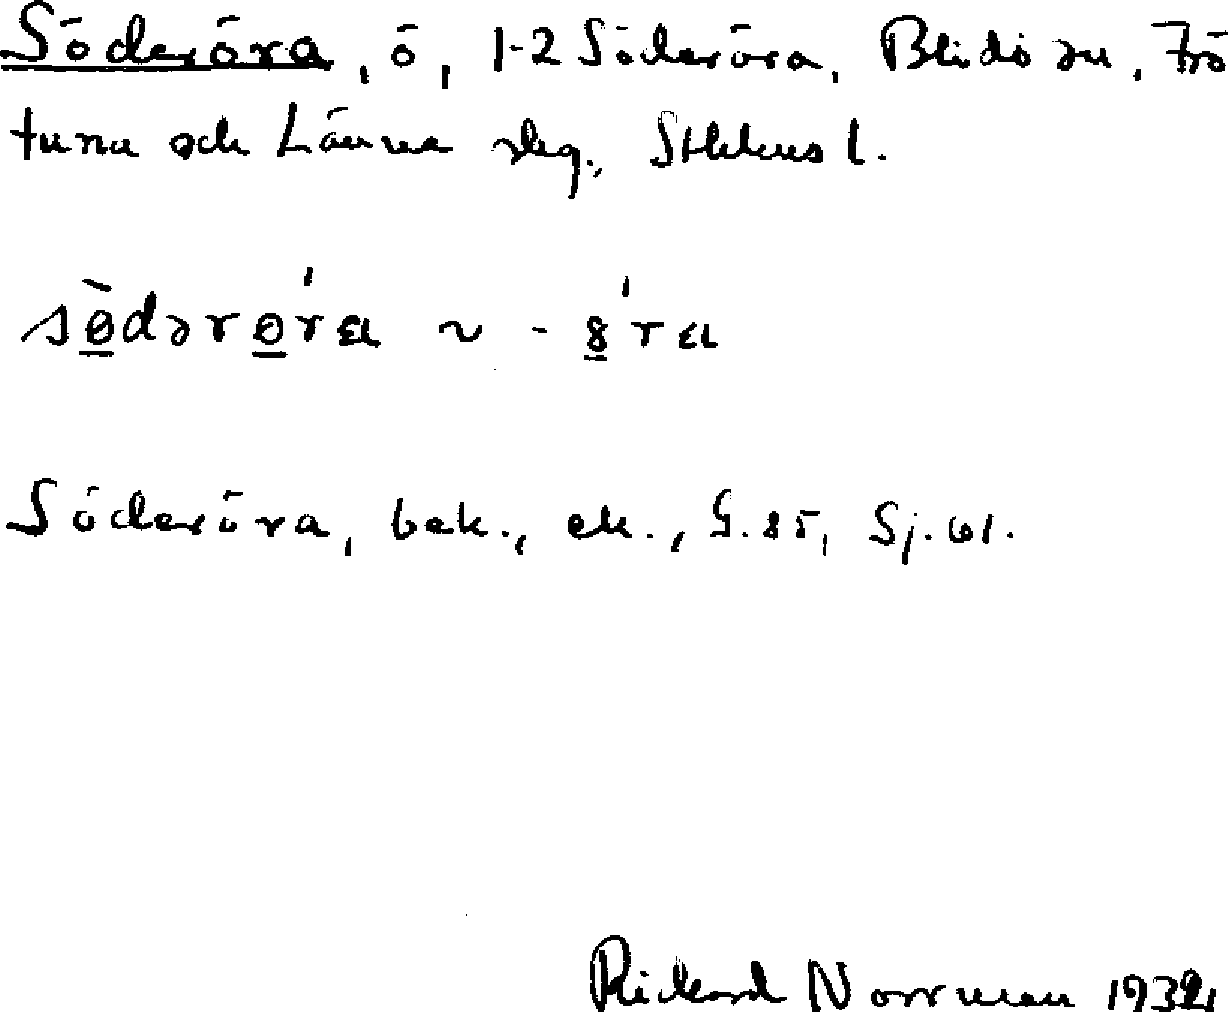 Söderöra, ö, 1-2 Söderöra, Blidö sn, Frö
tuna och Länna skg., Sthlms l.
södərөra ~ -8ra
Söderöra, bek., ek., G.85, Sj.61.
Rickard Norrman 1932